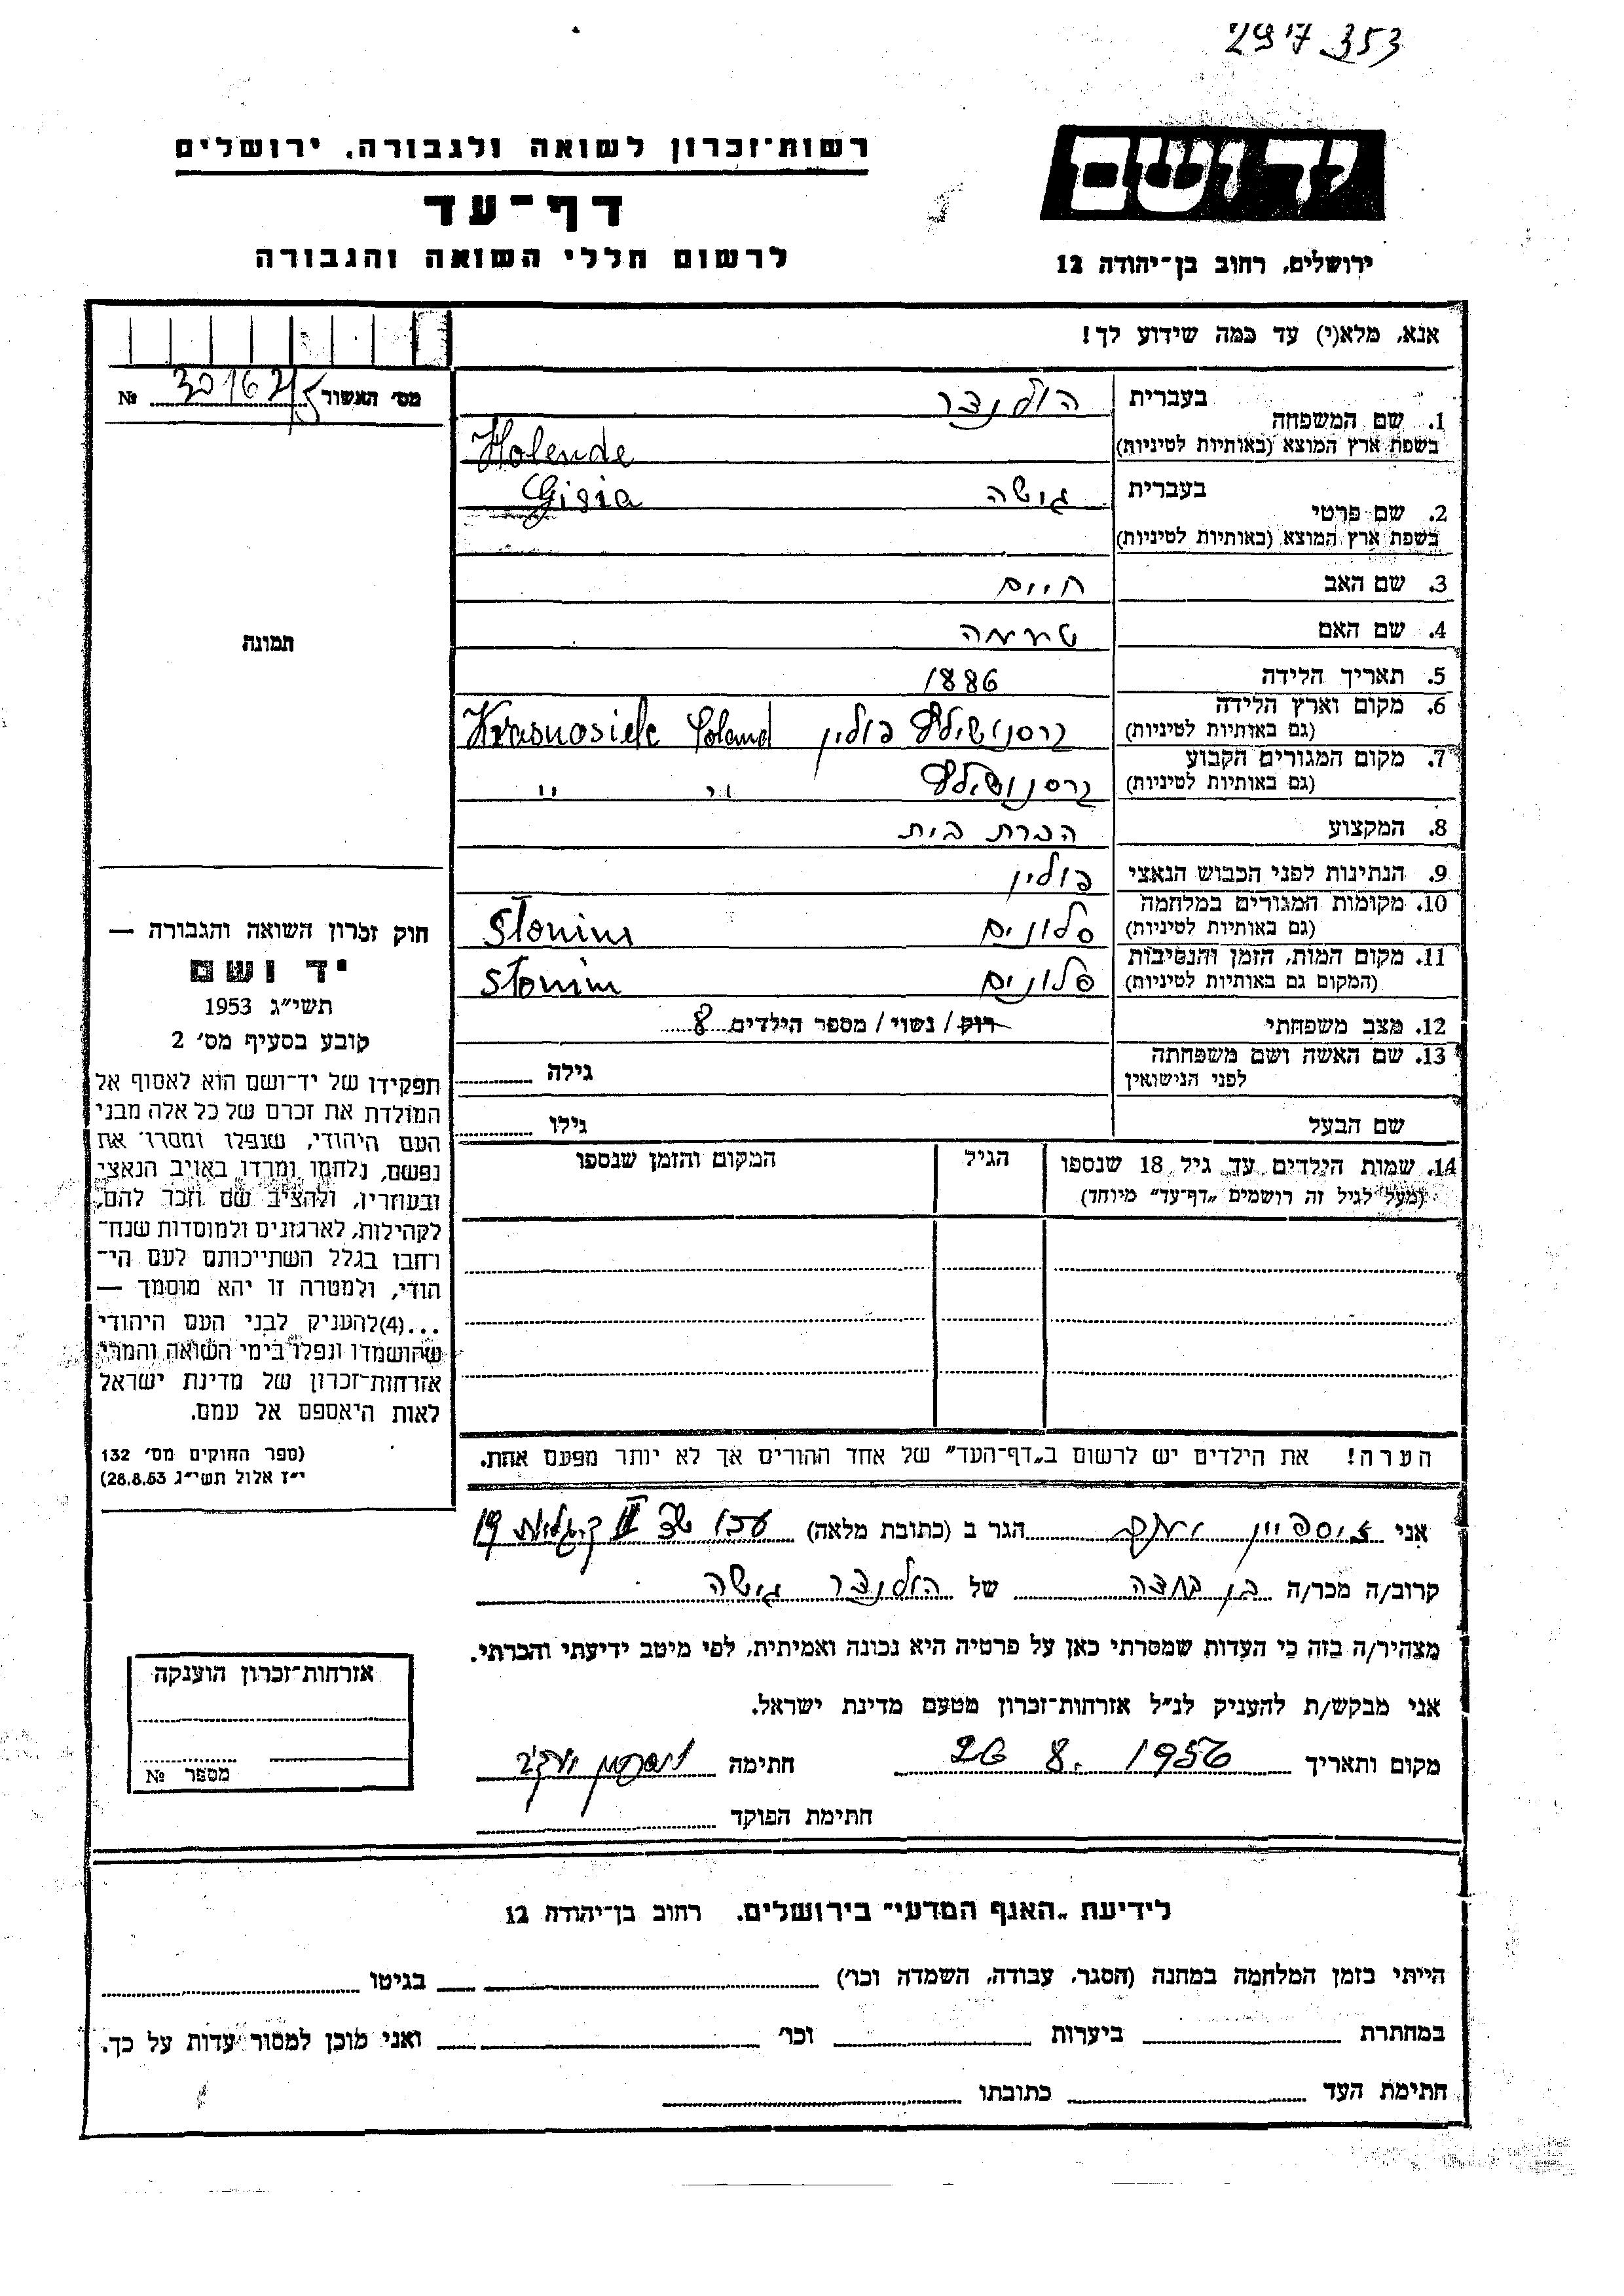 297353
רשות־זכרון לשואה ולגבורה, ירושלים
דף־עד
לרשום חללי השואה והגבורה
יד ושם
ירושלים, רחוב בן־יהודה 12
אנא, מלא(י) עד כמה שידוע לך!
מס' האשור 30162/5 №
1. שם המשפחה בעברית הולנדר
בשפת ארץ המוצא (באותיות לטיניות) Holende
2. שם פרטי בעברית גישה Gisia
בשפת ארץ המוצא (באותיות לטיניות)
3. שם האב חיים
4. שם האם
5. תאריך הלידה 1886
6. מקום וארץ הלידה
(גם באותיות לטיניות) פולין Krasnosiele Poland
7. מקום המגורים הקבוע
(גם באותיות לטיניות) " "
8. המקצוע בית
9. הנתינות לפני הכבוש הנאצי פולין
10. מקומות המגורים במלחמה
(גם באותיות לטיניות) סלונים Słonim
11. מקום המות, הזמן והנסיבות
(המקום גם באותיות לטיניות) סלונים Słonim
12. מצב משפחתי רוק / נשוי / מספר הילדים 8
13. שם האשה ושם משפחתה
לפני הנישואין גילה
שם הבעל גילו
14. שמות הילדים עד גיל 18 שנספו
(מעל לגיל זה רושמים „דף־עד" מיוחד)
הגיל
המקום והזמן שנספו
הערה! את הילדים יש לרשום ב„דף־העד" של אחד ההורים אך לא יותר מפעם אחת.
תמונה
חוק זכרון השואה והגבורה —
יד ושם
תשי"ג 1953
קובע בסעיף מס' 2
תפקידו של יד־ושם הוא לאסוף אל
המולדת את זכרם של כל אלה מבני
העם היהודי, שנפלו ומסרו את
נפשם, נלחמו ומרדו באויב הנאצי
ובעוזריו, ולהציב שם וזכר להם,
לקהילות, לארגונים ולמוסדות שנח־
רחבו בגלל השתייכותם לעם הי־
הודי, ולמטרה זו יהא מוסמך —
...(4)להעניק לבני העם היהודי
שהושמדו ונפלו בימי השואה והמרי
אזרחות־זכרון של מדינת ישראל
לאות היאספם אל עמם.
(ספר החוקים מס' 132
י"ז אלול תשי"ג 28.8.53)
אני הגר ב (כתובת מלאה) עכו 19
קרוב/ה מכר/ה של הולנדר גישה
מצהיר/ה בזה כי העדות שמסרתי כאן על פרטיה היא נכונה ואמיתית, לפי מיטב ידיעתי והכרתי.
אני מבקש/ת להעניק לנ"ל אזרחות־זכרון מטעם מדינת ישראל.
מקום ותאריך 26 8. 1956 חתימה
חתימת הפוקד
אזרחות־זכרון הוענקה
מספר №
לידיעת „האגף המדעי" בירושלים, רחוב בן־יהודה 12
הייתי בזמן המלחמה במחנה (הסגר, עבודה, השמדה וכו') בגיטו
במחתרת ביערות וכו' ואני מוכן למסור עדות על כך.
חתימת העד כתובתו